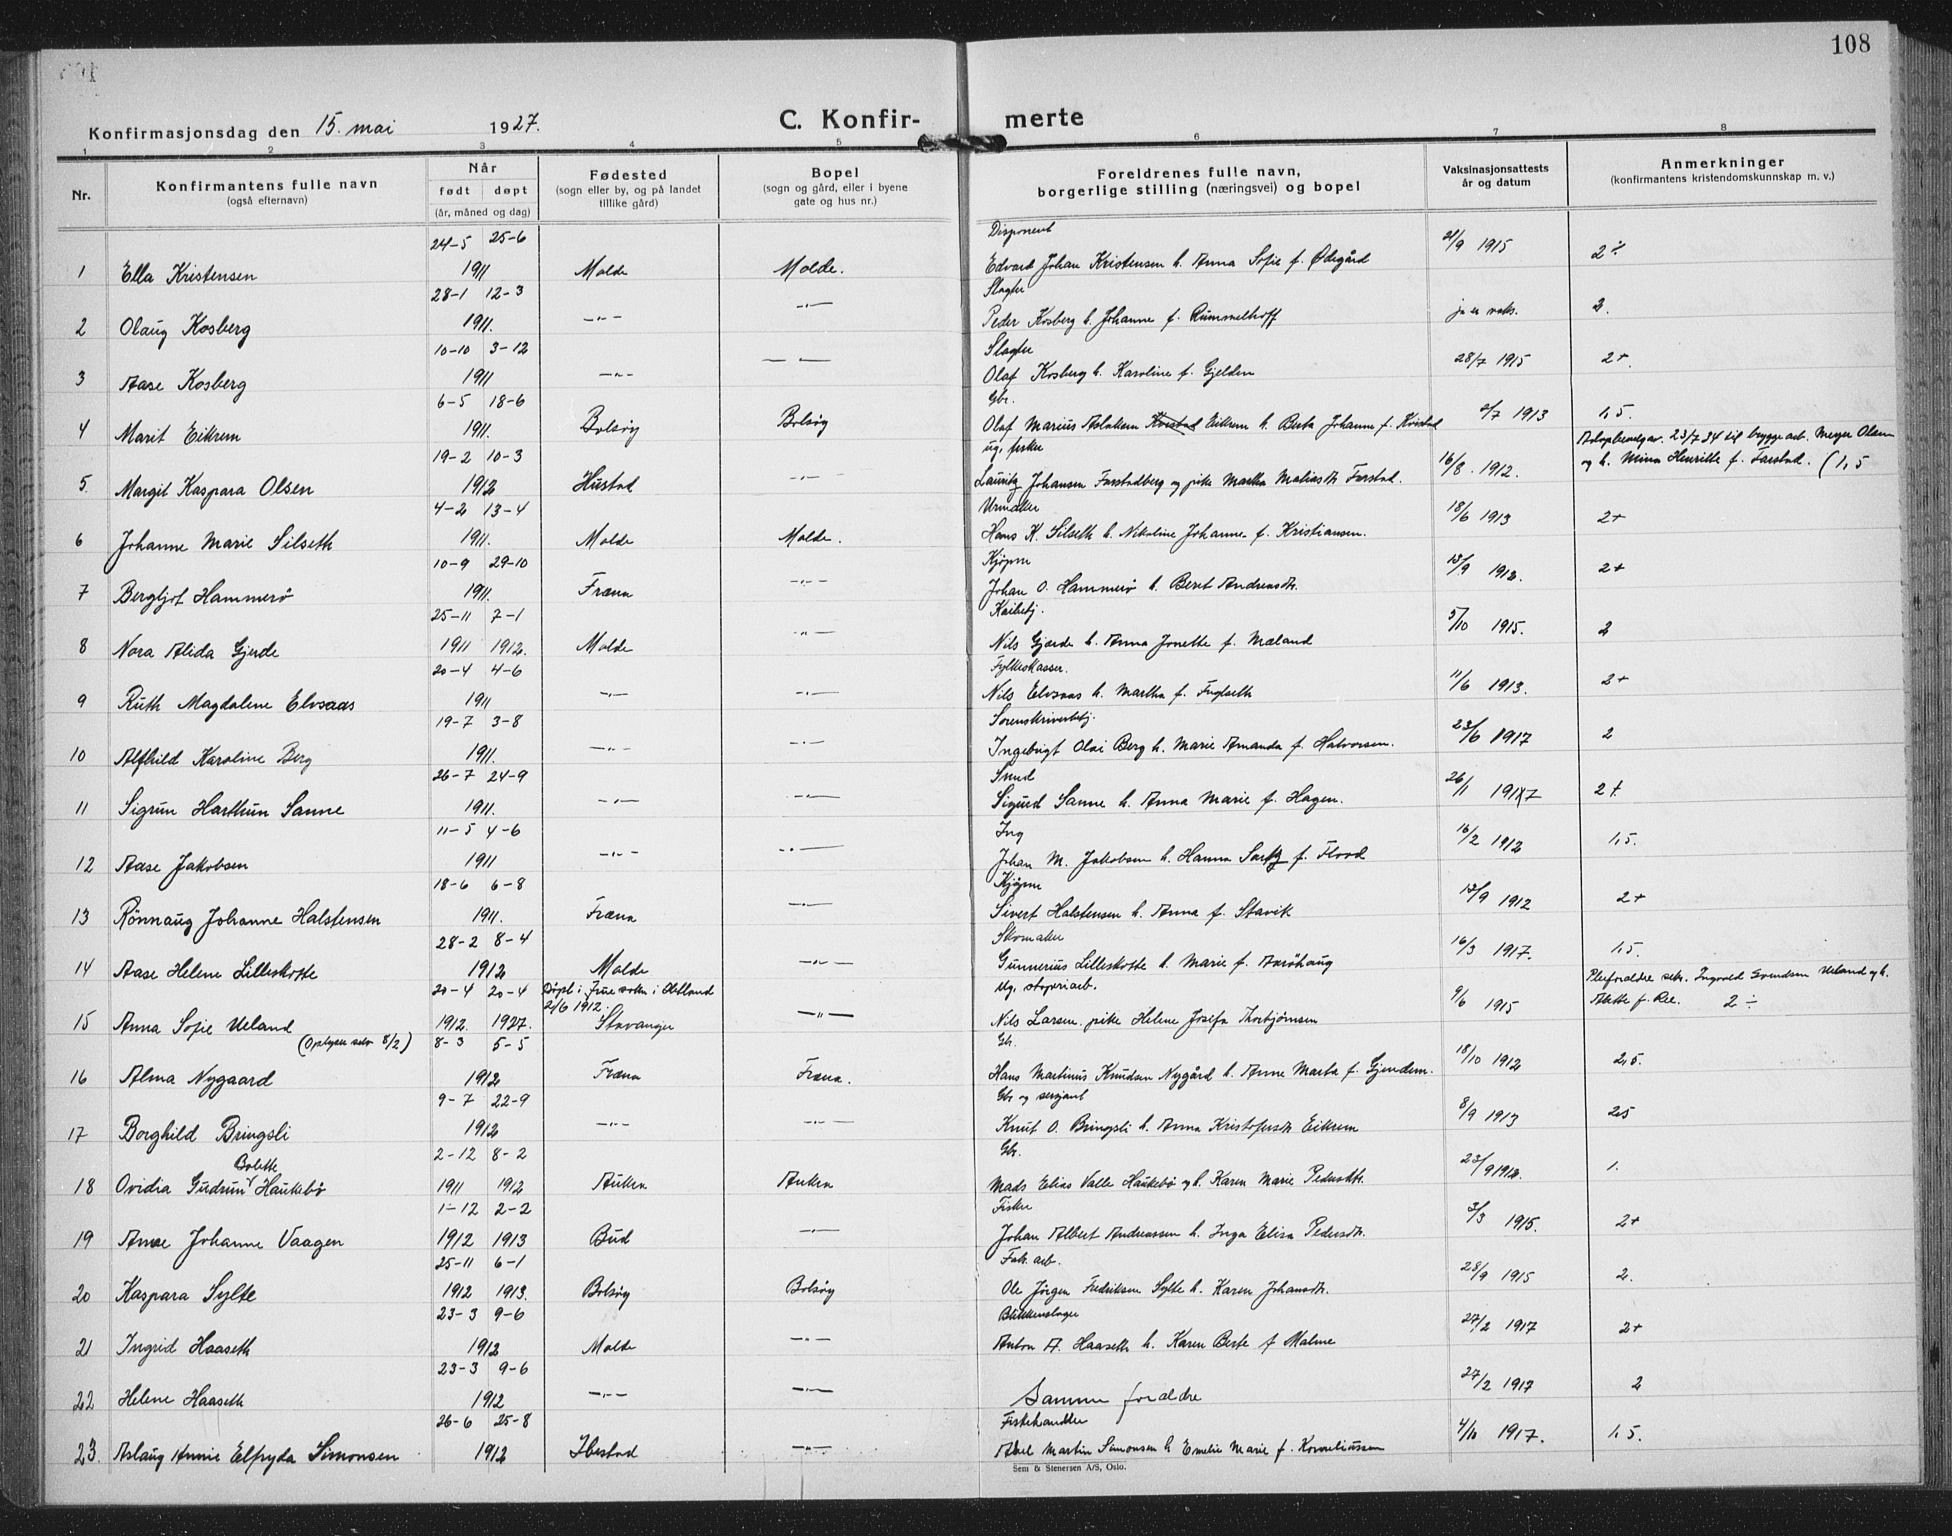 108
Konfirmasjonsdag den 15. mai 1927.
C. Konfirmerte
1 2 3 4 5 6 7 8
Nr.
Konfirmantens fulle navn
(også efternavn)
Når
født døpt
(år, måned og dag)
Fødested
(sogn eller by, og på landet
tillike gård)
Bopel
(sogn og gård, eller i byene
gate og hus nr.)
Foreldrenes fulle navn,
borgerlige stilling (næringsvei) og bopel
Vaksinasjonsattests
år og datum
Anmerkninger
(konfirmantens kristendomskunnskap m. v.)
24-5 25-6 Disponent
1 Ella Kristensen 1911 Molde Molde. Edvard Johan Kristensen h. Anna Sofie f. Ødegård 21/9 1915 2÷
28-1 12-3 Slagter
2 Olaug Kosberg 1911. —„— —„— Peder Kosberg h. Johanne f. Rummelhoff ja er vaks. 2.
10-10 3-12 Slagter
3 Aase Kosberg 1911 —„— —„— Olaf Kosberg h. Karoline f. Gjelden 28/7 1915 2+
6-5 18-6 Gbr.
4 Marit Eikrem 1911. Bolsøy Bolsøy Olaf Marius Aslaksen Kvistad Eikrem h. Berta Johanne f. Kvistad 2/7 1913 1,5.
19-2 10-3 ug. fisker
5. Margit Kaspara Olsen 1912 Hustad —„— Lauritz Johansen Farstadberg og pike Martha Matiasdtr Farstad. 16/8. 1912. Adopbevilgn. 23/7 24 til bryggearb. Meyer Olsen
og h. Mina Henrikke f. Farstad. (1,5
4-2 13-4 Urmaker
6 Johanne Marie Silseth 1911. Molde Molde. Hans K. Silseth h. Nikoline Johanne f. Kristiansen. 18/6 1913 2+
10-9 29-10 Kjøpm
7 Bergljot Hammerö 1911. Fræna —„— Johan O. Hammerö h. Beret Andreasdtr. 13/9 1912. 2+
25-11 7-1 Kaibetj.
8 Nora Alida Gjerde 1911 1912. Molde —„— Nils Gjerde h. Anna Jonette f. Mæland 5/10 1915. 2
20-4 4-6 Fylkeskasser.
9 Ruth Magdalene Elvsaas 1911 —„— —„— Nils Elvsaas h. Martha f. Fuglseth 11/6 1913. 2+
19-7 3-8 Sorenskriverbetj.
10 Alfhild Karoline Berg 1911. —„— —„— Ingebrigt Olai Berg h. Marie Amanda f. Halvorsen. 23/6 1917 2
26-7 24-9 Smed
11 Sigrun Harthun Sanne 1911. —„— —„— Sigurd Sanne h. Anna Marie f. Hagen. 26/11 1917 2+
11-5 4-6 Ing
12 Aase Jakobsen 1911 —„— —„— Johan M. Jakobsen h. Hanna f. Flood 16/2 1912 1,5.
18-6 6-8 Kjøpm
13 Rönnaug Johanne Halstensen 1911. Fræna —„— Sivert Halstensen h. Anna f. Stavik 12/9 1912 2+
28-2 8-4 Skomaker
14 Aase Helene Lilleskotte 1912 Molde —„— Gunnerius Lilleskotte h. Marie f. Aaröhaug 16/3 1917. 1,5.
20-4 20-4 Døpt i Frue sokn i Østland ug. støperiarb. Pleieforeldre sekr. Ingvald Svendsen Ueland og h.
2/6 1912.
15 Anna Sofie Ueland 1912. 1927. Stavanger —„— Nils Larsen. pike Helene Josefa Thorbjørnsen 9/6 1915 f. Ree. 2÷
(Oplyser selv 8/2) 8-3 5-5 Gbr.
16 Alma Nygaard 1912 Fræna Fræna. Hans Martinus Knudsen Nygård h. Anne Marta f. Gjendem. 18/10 1912 2,5.
9-7 22-9 Gbr og sersjant
17 Borghild Bringsli 1912 —„— —„— Knut O. Bringsli h. Anna Kristofersdtr Eikrem 8/9 1913 2,5
Bolette 2-12 8-2 Gbr.
18 Ovidia Gudrun Haukebö 1911 1912 Aukra Aukra Mads Elias Valle Haukebö og h. Karen Marie Pedersdtr. 23/9 1912. 1.
1-12 2-2 Fisker
19 Anne Johanne Vaagen 1912 1913 Bud —„— Johan Albert Andreassen h. Inga Elisa Pedersdtr. 3/3 1915. 2+
25-11 6-1 Fab. arb.
20 Kaspara Sylte 1912 1913. Bolsøy Bolsøy Ole Jörgen Fredriksen Sylte h. Karen Johansdtr. 28/9 1915 2.
23-3 9-6 Blikkenslager
21 Ingrid Haaseth 1912 Molde —„— Anton A. Haaseth h. Karen Berte f Malme 27/2 1917 2+
23-3 9-6
22 Helene Haaseth 1912 —„— —„— Samme foreldre 27/2 1917 2
26-6 25-8 Fiskehandler
23. Aslaug Annie Elfryda Simonsen 1912 Ibestad —„— Aksel Martin Simonsen h Emelie Marie f. Korneliussen 4/10 1917. 1,5.
Sem & Stenersen A/S, Oslo.